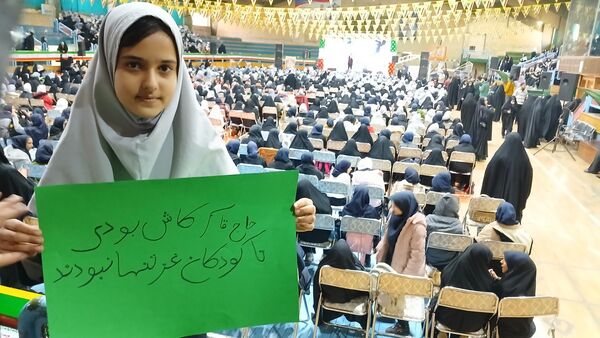 حاج قاسم کاش بودی
تا کودکان غزه تنها نبودند